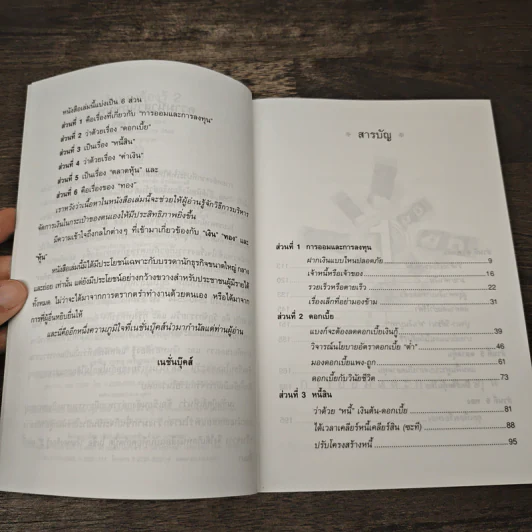 หนังสือเล่มนี้แบ่งเป็น 6 ส่วน
ส่วนที่ 1 คือเรื่องที่เกี่ยวกับ "การออมและการลงทุน"
ส่วนที่ 2 ว่าด้วยเรื่อง "ดอกเบี้ย"
ส่วนที่ 3 เป็นเรื่อง "หนี้สิน"
ส่วนที่ 4 ว่าด้วยเรื่อง "ค่าเงิน"
ส่วนที่ 5 เป็นเรื่อง "ตลาดหุ้น" และ
ส่วนที่ 6 คือเรื่องของ "ทอง"
เราหวังว่าเนื้อหาในหนังสือเล่มนี้จะช่วยให้ผู้อ่านรู้จักวิธีการบริหาร
จัดการเงินในกระเป๋าของตนเองให้มีประสิทธิภาพยิ่งขึ้น
มีความเข้าใจถึงกลไกต่างๆ ที่เข้ามาเกี่ยวข้องกับ "เงิน" "ทอง" และ
"หุ้น"
หนังสือเล่มนี้มิได้มีประโยชน์เฉพาะกับบรรดานักธุรกิจขนาดใหญ่ กลาง
และย่อย เท่านั้น แต่ยังมีประโยชน์อย่างกว้างขวางสำหรับประชาชนผู้มีรายได้
ทั้งหมด ไม่ว่าจะได้มาจากการตรากตรำทำงานด้วยตนเอง หรือได้มาจาก
การที่ผู้อื่นหยิบยื่นให้
และนี่คืออีกหนึ่งความภูมิใจที่เนชั่นบุ๊คส์นำมากำนัลแด่ท่านผู้อ่าน
เนชั่นบุ๊คส์
สารบัญ
ส่วนที่ 1 การออมและการลงทุน
ฝากเงินแบบไหนปลอดภัย 9
เจ้าหนี้หรือเจ้าของ 16
รวยเร็วหรือตายเร็ว 22
เรื่องเล็กที่อย่ามองข้าม 31
ส่วนที่ 2 ดอกเบี้ย
แบงก์จะต้องลดดอกเบี้ยเงินกู้ 39
วิจารณ์นโยบายอัตราดอกเบี้ย "ต่ำ" 46
มองดอกเบี้ยแพง-ถูก 61
ดอกเบี้ยกับวินัยชีวิต 73
ส่วนที่ 3 หนี้สิน
ว่าด้วย "หนี้" เงินต้น-ดอกเบี้ย 81
ได้เวลาเคลียร์หนี้เคลียร์สิน (ซะที) 88
ปรับโครงสร้างหนี้ 95